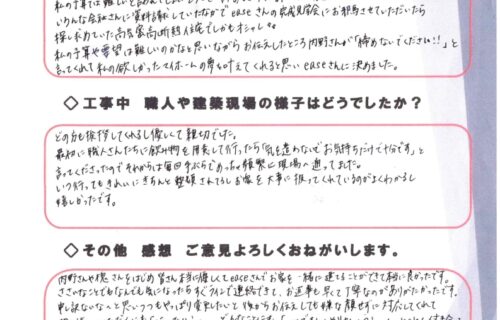 いろんな会社さんに資料請求していたなかでeaseさんの完成見学会にお邪魔させていただいたら
探し求めていた高気密高断熱住宅でしかもオシャレ。
私の予算や要望は難しいのかなと思いながらお伝えしたところ内野さんが「諦めないでください!!」と
言ってくれて私の欲しかったマイホームの夢も叶えてくれると思いeaseさんに決めました。
◇工事中 職人や建築現場の様子はどうでしたか?
どの方も挨拶してくれるし優しくて親切でした。
最初に職人さんたちに飲み物を用意して行ったら「気を遣わないでお気持ちだけで十分です」と
言ってくださったのでそれからは毎回手ぶらであっちゃ頻繁に現場へ通ってました。
いつ行ってもきれいにきちんと整頓されてるしお家を大事に扱ってくれているのがよくわかるし
嬉しかったです。
◇その他 感想 ご意見よろしくおねがいします。
内野さんや槐さんをはじめ皆さん本当に優しくてeaseさんでお家を一緒に建てることができて本当に良かったです。
ささいなことでもなんでも気になったらすぐラインで連絡できて、お返事も早くて丁寧なのがありがたかったです。
申し訳ないな〜と思いつつもやっぱり変更したいと後からお伝えしても嫌な顔せずに対応してくれて